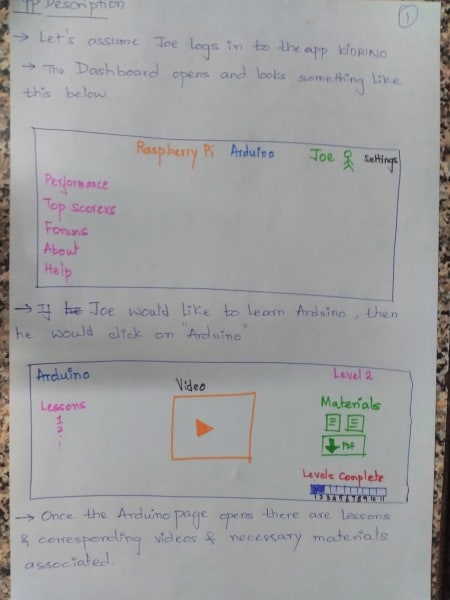 Description
1
→ Let's assume Joe logs in to the app KIDRINO
→ The Dashboard opens and looks something like
this below
Raspberry Pi Arduino Joe settings
Performance
Top scorers
Forums
About
Help
→ If he Joe would like to learn Arduino, then
he would click on "Arduino"
Arduino
Level 2
Video
Lessons
1
2
Materials
PDF
Levels Complete
1 2 3 4 5 6 7 8 9 10 11
→ Once the Arduino page opens there are lessons
& corresponding videos & necessary materials
associated.